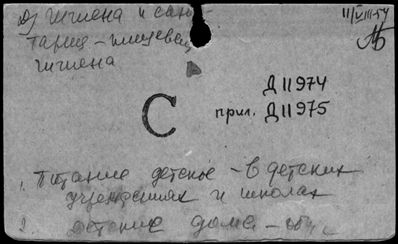 гигиена и сани-
тария - пищевая
гигиена
11/VIII-54
С
Д 11974
прил. Д 11975
1. Питание детское - в детских
учреждениях и школах
2. Детские дома -